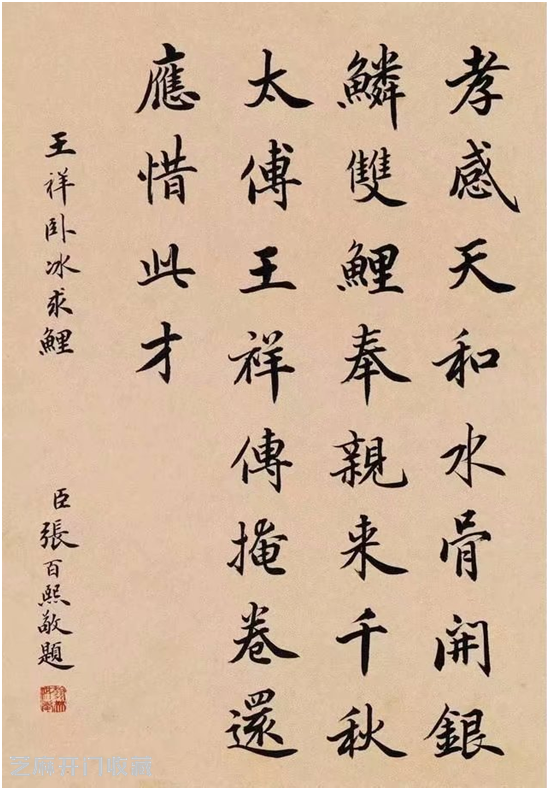 孝感天和水骨開銀
鱗雙鯉奉親来千秋
太傅王祥傳掩卷還
應惜此才
王祥卧冰求鯉
臣張百熙敬題
芝麻开门收藏